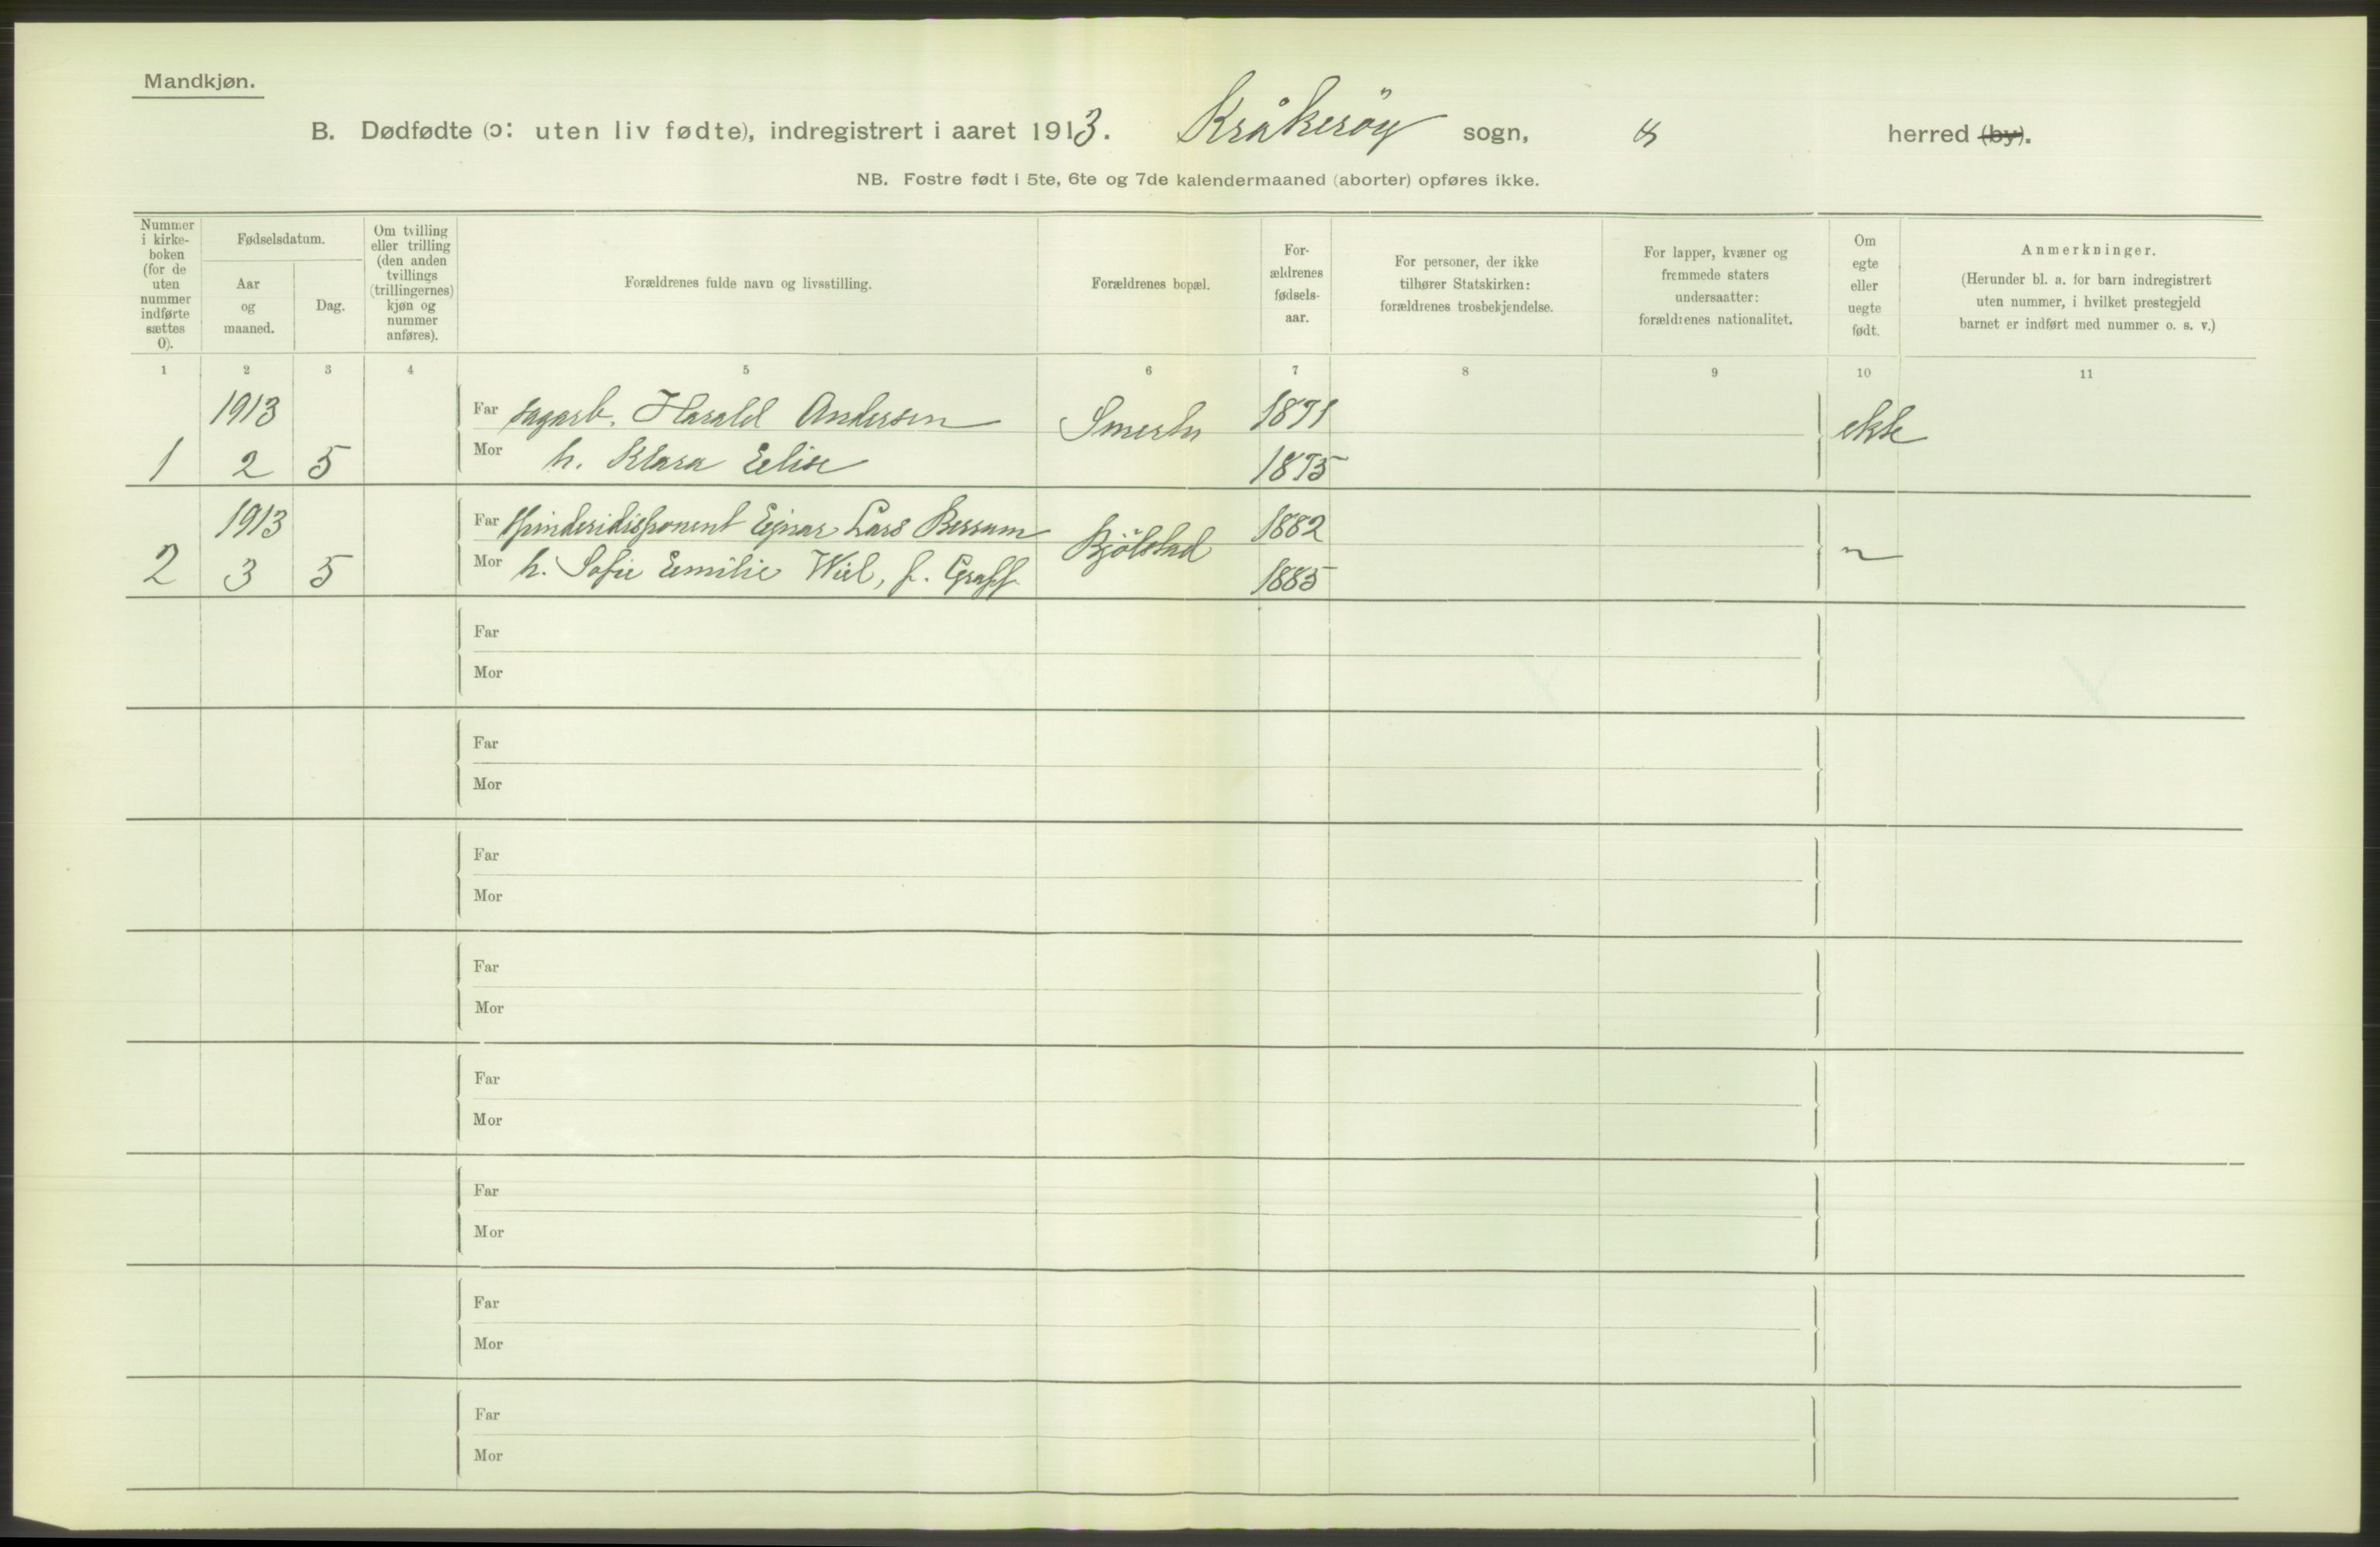 Mandkjøn.
B. Dødfødte (ɔ: uten liv fødte), indregistrert i aaret 1913. Kråkeröy sogn, herred (by).
NB. Fostre født i 5te, 6te og 7de kalendermaaned (aborter) opføres ikke.
Nummer i kirke-boken (for de uten nummer indførte sættes 0).
Fødselsdatum.
Aar og maaned.
Dag.
Om tvilling eller trilling (den anden tvillings (trillingernes) kjøn og nummer anføres).
Forældrenes fulde navn og livsstilling.
Forældrenes bopæl.
For-ældrenes fødsels-aar.
For personer, der ikke tilhører Statskirken: forældrenes trosbekjendelse.
For lapper, kvæner og fremmede staters undersaatter: forældrenes nationalitet.
Om egte eller uegte født.
Anmerkninger.
(Herunder bl. a. for barn indregistrert uten nummer, i hvilket prestegjeld barnet er indført med nummer o. s. v.)
1 2 3 4 5 6 7 8 9 10 11
1913 Far sagarb. Harald Andersen 1871
1 2 5 Mor h. Klara Elise Smertu 1875 ekte
1913 Far Spinderidisponent Ejnar Lars Bessum 1882
2 3 5 Mor h. Sofie Emilie Wiel, f. Graff Bjölstad 1885 "
Far
Mor
Far
Mor
Far
Mor
Far
Mor
Far
Mor
Far
Mor
Far
Mor
Far
Mor